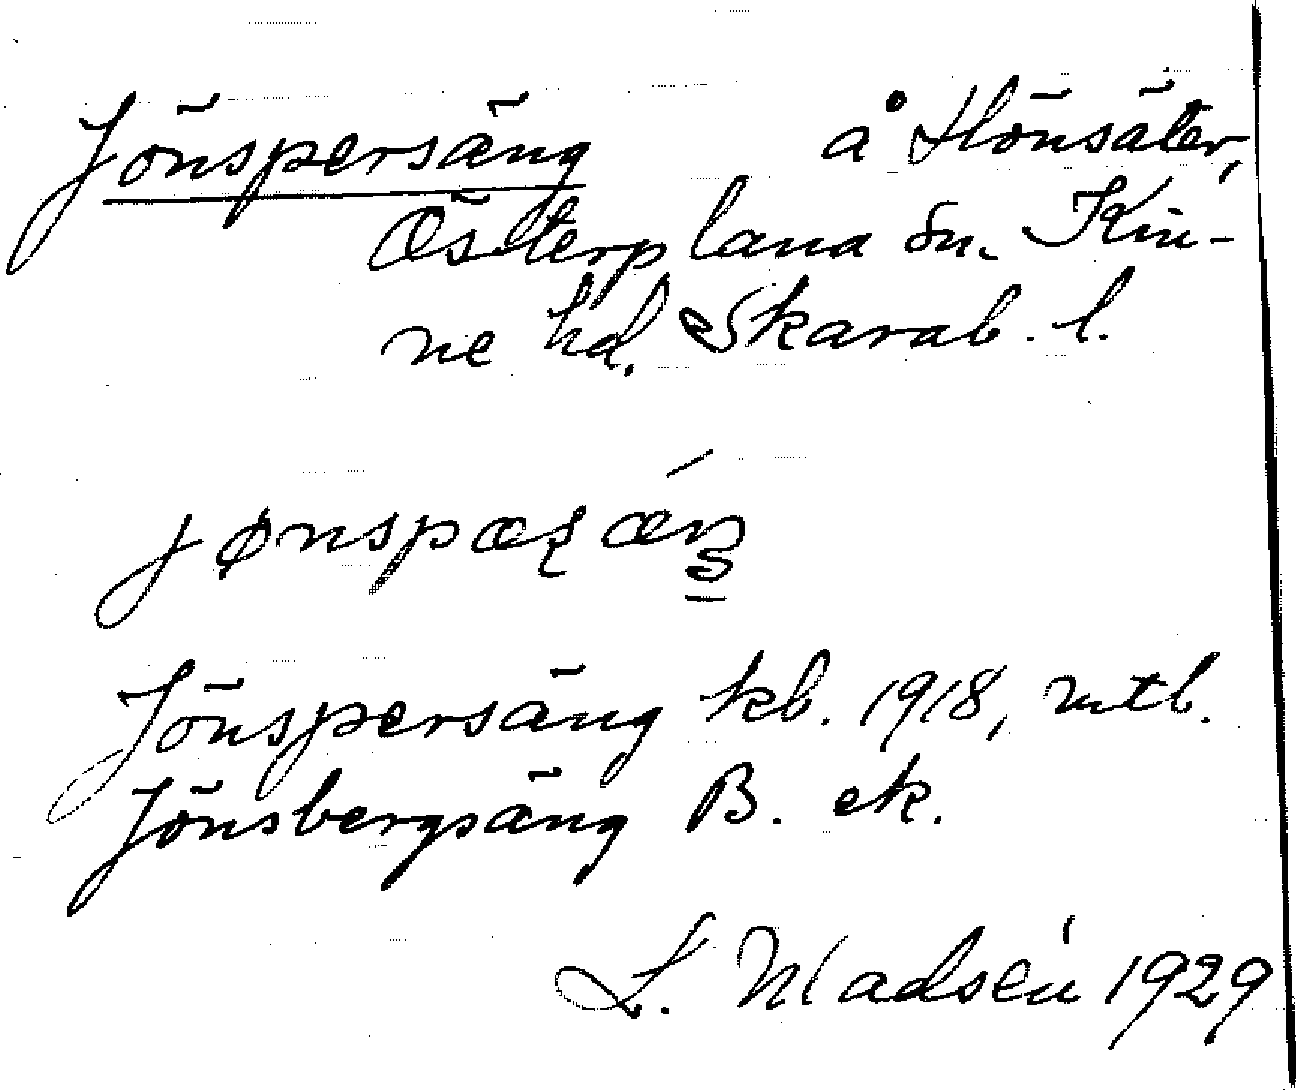 Jönspersäng å Hönsäter,
Österplana sn. Kin-
ne hd. Skarab. l.
jønspæʂæŋ
Jönspersäng kb. 1918, mtb.
Jönsbergsäng B. ek.
L. Madsén 1929